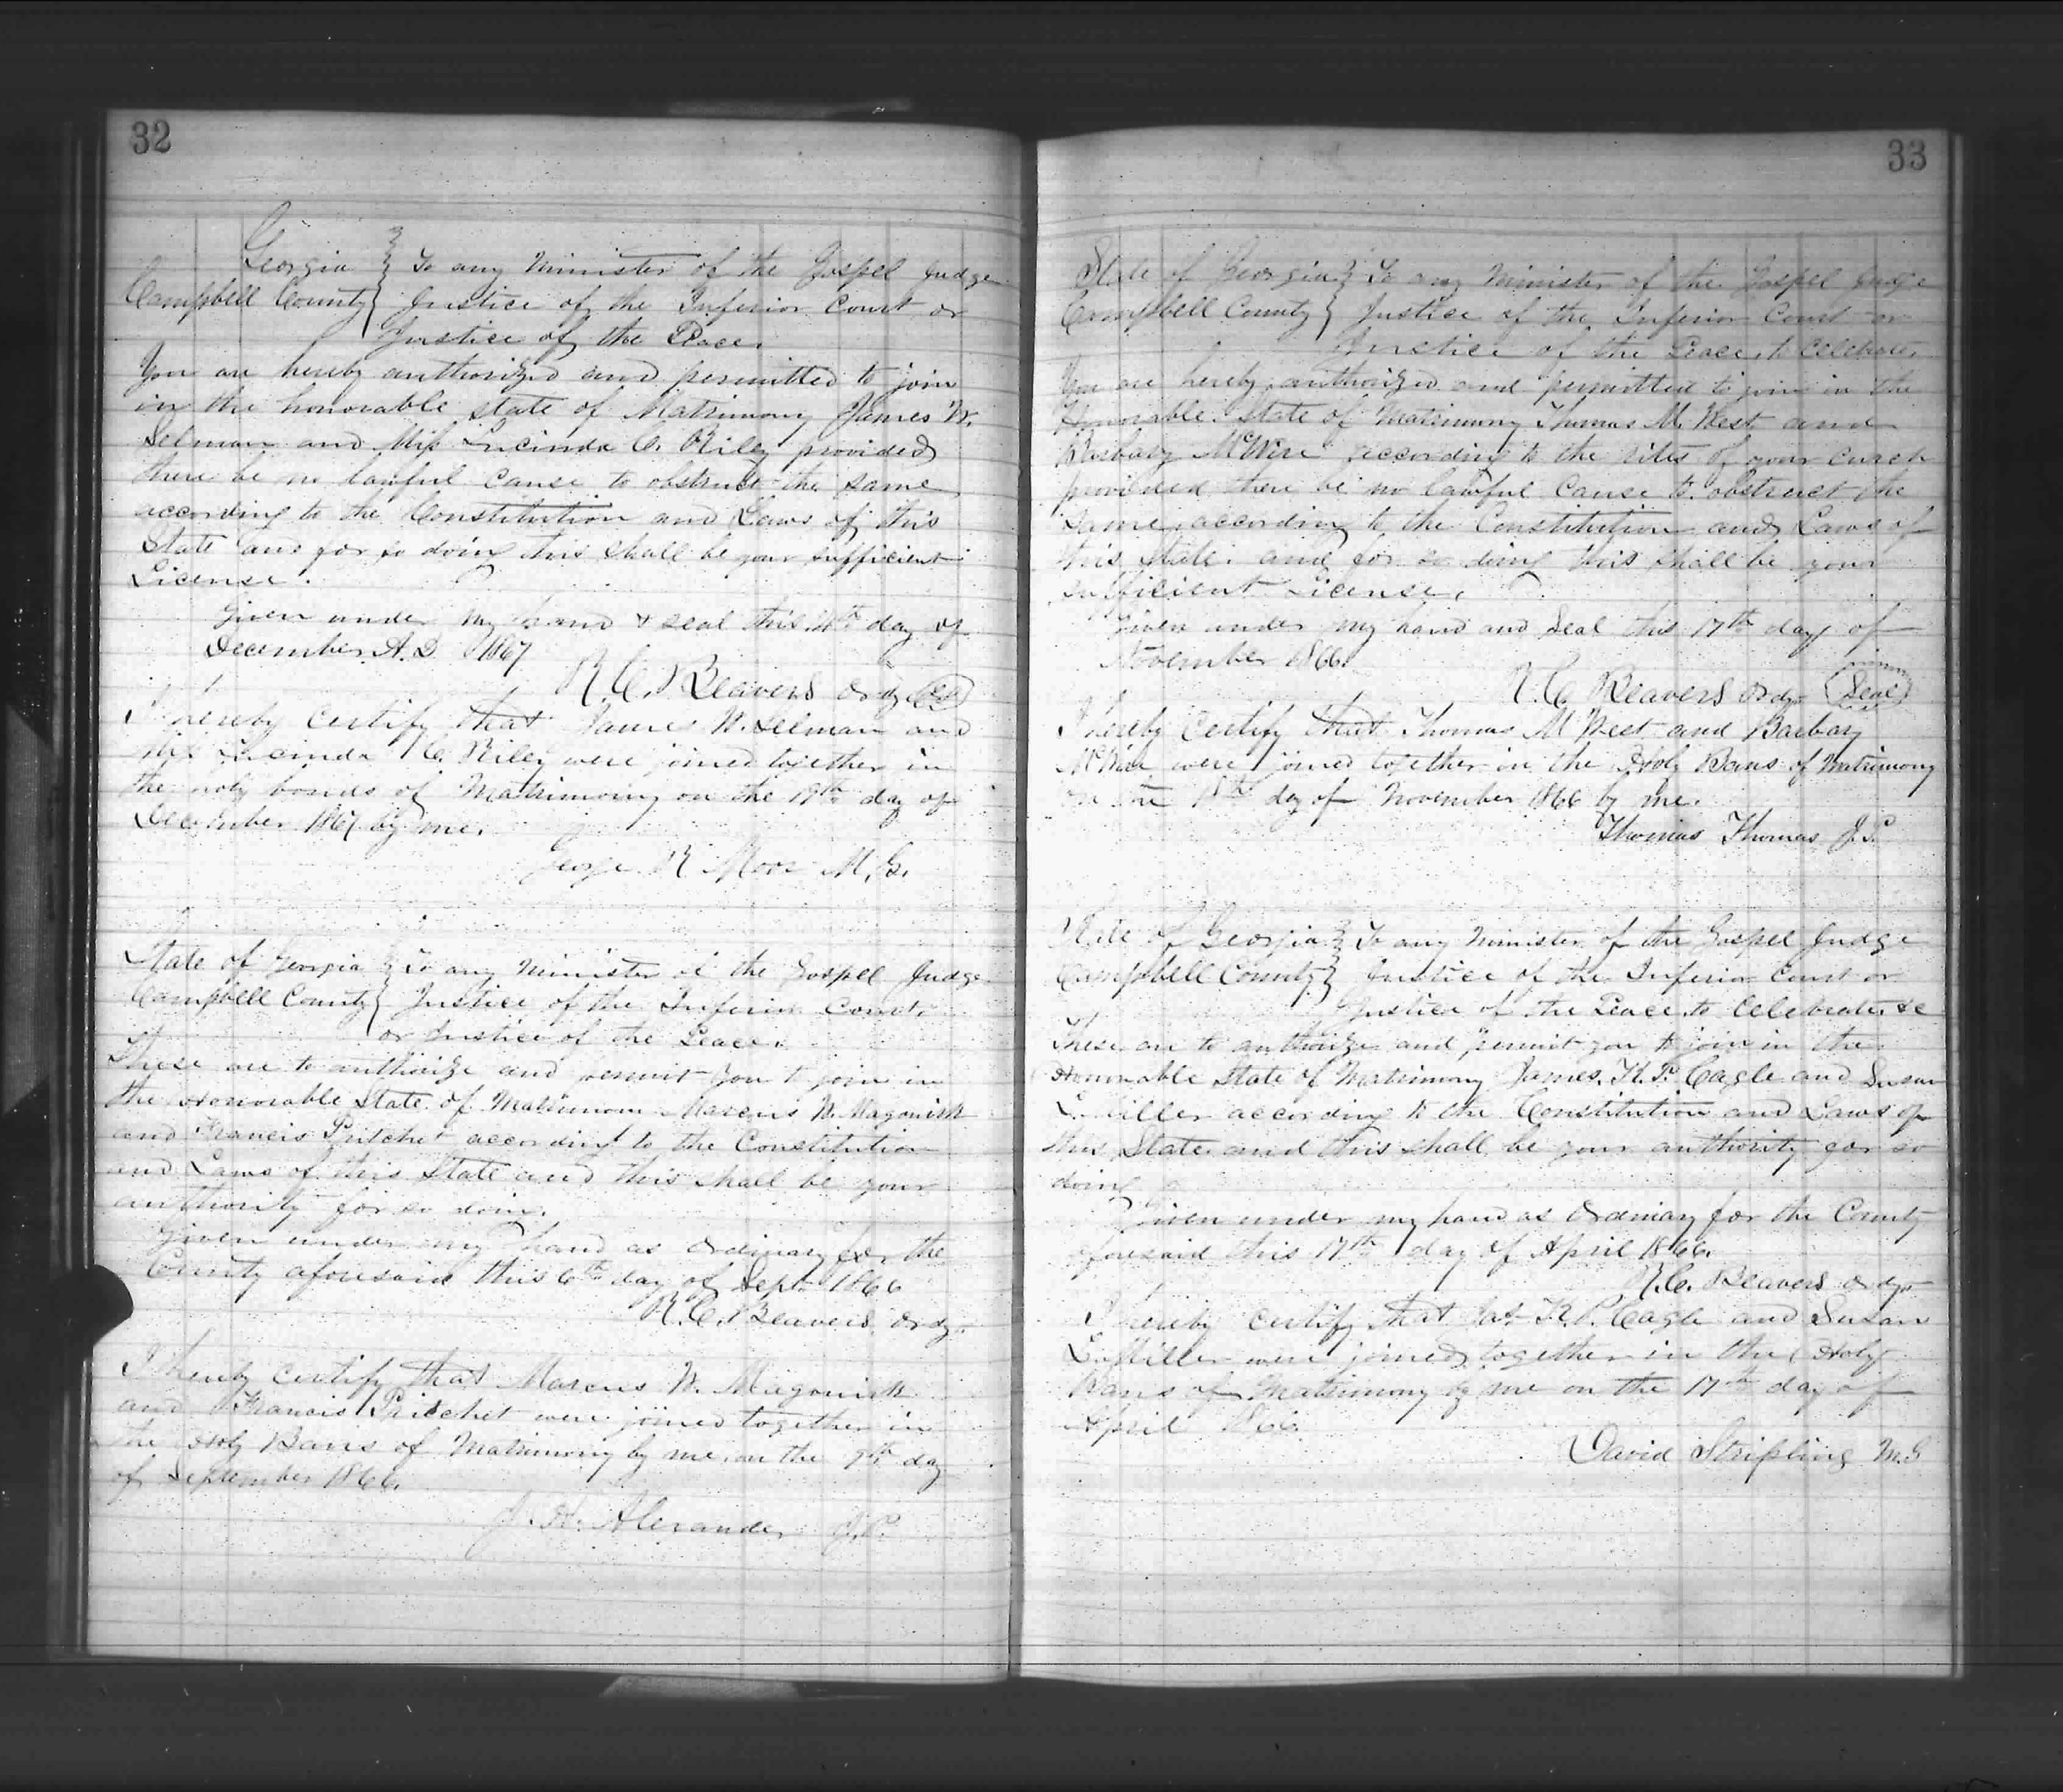 32
Georgia } To any Minister of the Gospel Judge
Campbell County } Justice of the Inferior Court or
Justice of the Peace.
You are hereby authorized and permitted to join
in the honorable state of Matrimony James W.
Selman and Miss Lucinda C. Riley provided
there be no lawful cause to obstruct the same
according to the Constitution and Laws of this
State and for so doing this shall be your sufficient
License.
Given under my hand & seal this 4th day of
December A.D 1867
R. C. Beavers Ordy
I hereby certify that James W. Selman and
Miss Lucinda C. Riley were joined together in
the holy bonds of Matrimony on the 19th day of
December 1867 by me.
George R Moor M. G.
State of Georgia } To any Minister of the Gospel Judge
Campbell County } Justice of the Inferior Court
or Justice of the Peace.
These are to authorize and permit you to join in
the Honorable State of Matrimony Marcus W. Magonirk
and Francis Pritchet according to the Constitution
and Laws of this State and this shall be your
authority for so doin.
Given under my hand as Ordinary for the
County aforesaid this 6th day of Sept 1866
R. C. Beavers Ordy.
I hereby certify that Marcus W. Magonirk
and Francis Pritchet were joined together in
the Holy Bans of Matrimony by me on the 9th day
of September 1866.
J. H. Alexander J.P.
33
State of Georgia } To any Minister of the Gospel Judge
Campbell County } Justice of the Inferior Court or
Justice of the Peace to Celebrate
You are hereby authorized and permitted to join in the
Honorable State of Matrimony Thomas M. West and
Barbary McWire according to the rites of your
provided there be no lawful Cause to obstruct the
same according to the Constitution and Laws of
this State and for so doing this shall be your
sufficient License.
Given under my hand and Seal this 17th day of
November 1866.
R. C. Beavers Ordy Seal
I hereby Certify that Thomas M West and Barbary
were joined together in the Holy Bans of Matrimony
on the 18th day of November 1866 by me.
Thomas Thomas J.P.
State of Georgia } To any Minister of the Gospel Judge
Campbell County } Justice of the Inferior Court or
Justice of the Peace to Celebrate &c
These are to authorize and permit you to join in the
Honorable State of Matrimony James. K. P. Cagle and Susan
L. Miller according to the Constitution and Laws of
this State and this shall be your authority for so
doing
Given under my hand as Ordinary for the County
aforesaid this 17th day of April 1866.
R. C. Beavers Ordy
I hereby certify that Jas K. P. Cagle and Susan
L. Miller were joined together in the Holy
Bans of Matrimony by me on the 17th day of
April 1866
David Stripling M.G